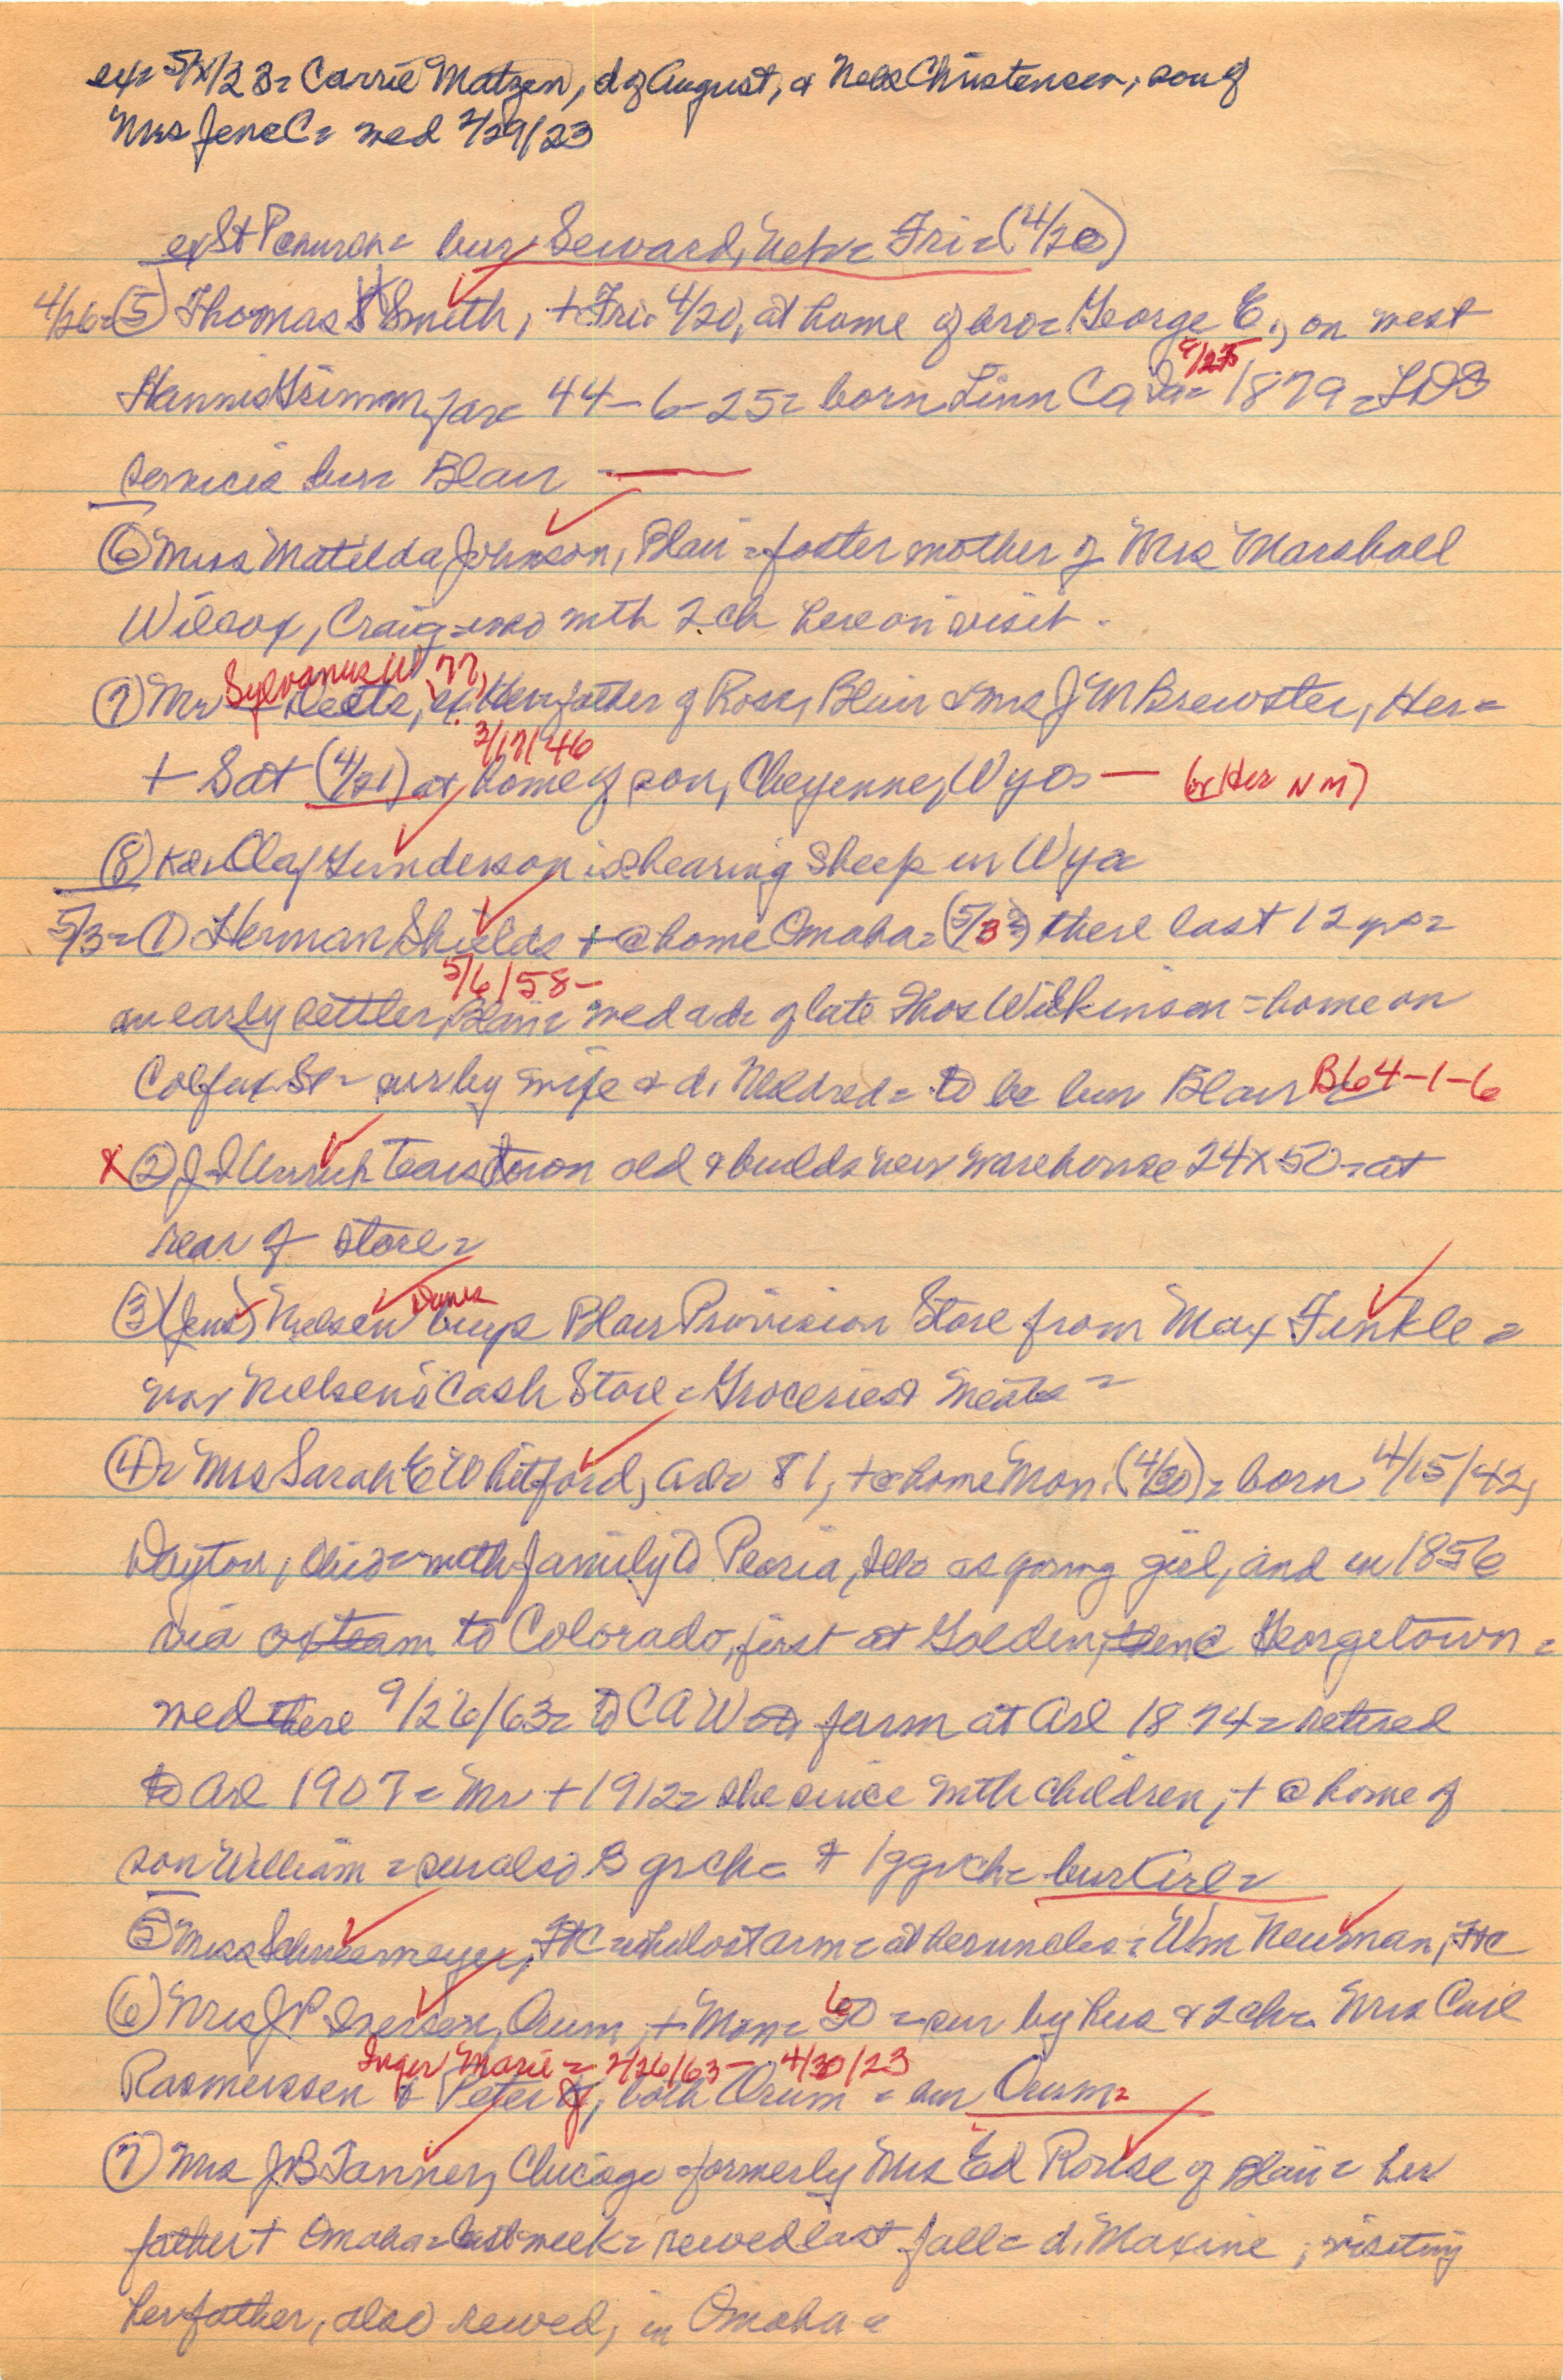 ex= 5/ /23= Carrie Matzen, d of August, & Nels Christensen, son of
Mrs Jens C= wed 2/29/23
ex St = bur Seward, Nebr= Fri=(4/20)
4/26=(5) Thomas H Smith, + Fri. 4/20, at home of bro= George E., on west
9/25
farm= 44-6-25= born Linn Co Ia= 1879 = LDS
services bur= Blair
(6) Mrs Matilda Johnson, Blair = foster mother of Mrs Marshall
Wilcox, Craig= who with 2 ch here on visit.
Sylvanus W 77,
(7) Mr , ex Her= father of Ross, Blair & Mrs J M Brewster, Her=
3/17/46
+ Sat (4/21) at home of son, Cheyenne, Wyo= — (or Her N M)
(8) Olaf Gunderson is shearing sheep in Wyo=
5/3=(1) Herman Shields + @ home Omaha= (5/3) there last 12 yrs=
5/6/58-
an early settler, Blair= wed a d= of late Thos Wilkinson = home on
Colfax St= sur by wife & d. Mildred= to be bur Blair= B64-1-6
X (2) J I Unruh tears down old & builds new warehouse 24x50= at
rear of store=
Danes
(3) (Jens) Nielsen buys Blair Provision Store from Max Finkle=
now Nielsen's Cash Store = Groceries & Meats=
(4)= Mrs Sarah E Whitford, Arl= 81, + @ home Mon. (4/30)= born 4/15/42,
Dayton, Ohio= with family to Peoria, Ills as young girl, and in 1856
via ox team to Colorado, first at Golden, thence Georgetown=
wed there 9/26/63= to C A W= to farm at Arl 1874= retired
to Arl 1907= Mr + 1912= she since with children, + @ home of
son William = sur also 8 grch= & 1 ggrch= bur Arl=
(5) Miss Schneermeyer, FtC= who lost arm= at her uncles= Wm Newman, FtC
6
(6) Mrs J P Iversen, Orum, + Mon= 30 = sur by hus & 2 ch= Mrs Carl
Inger Marie= 2/26/63 - 4/30/23
Rasmussen & Peter J, both Orum = bur Orum=
(7) Mrs J B Tanner, Chicago= formerly Mrs Ed Rouse of Blair= her
father + Omaha= last week= rewed last fall= d. Maxine, visiting
her father, also rewed, in Omaha=